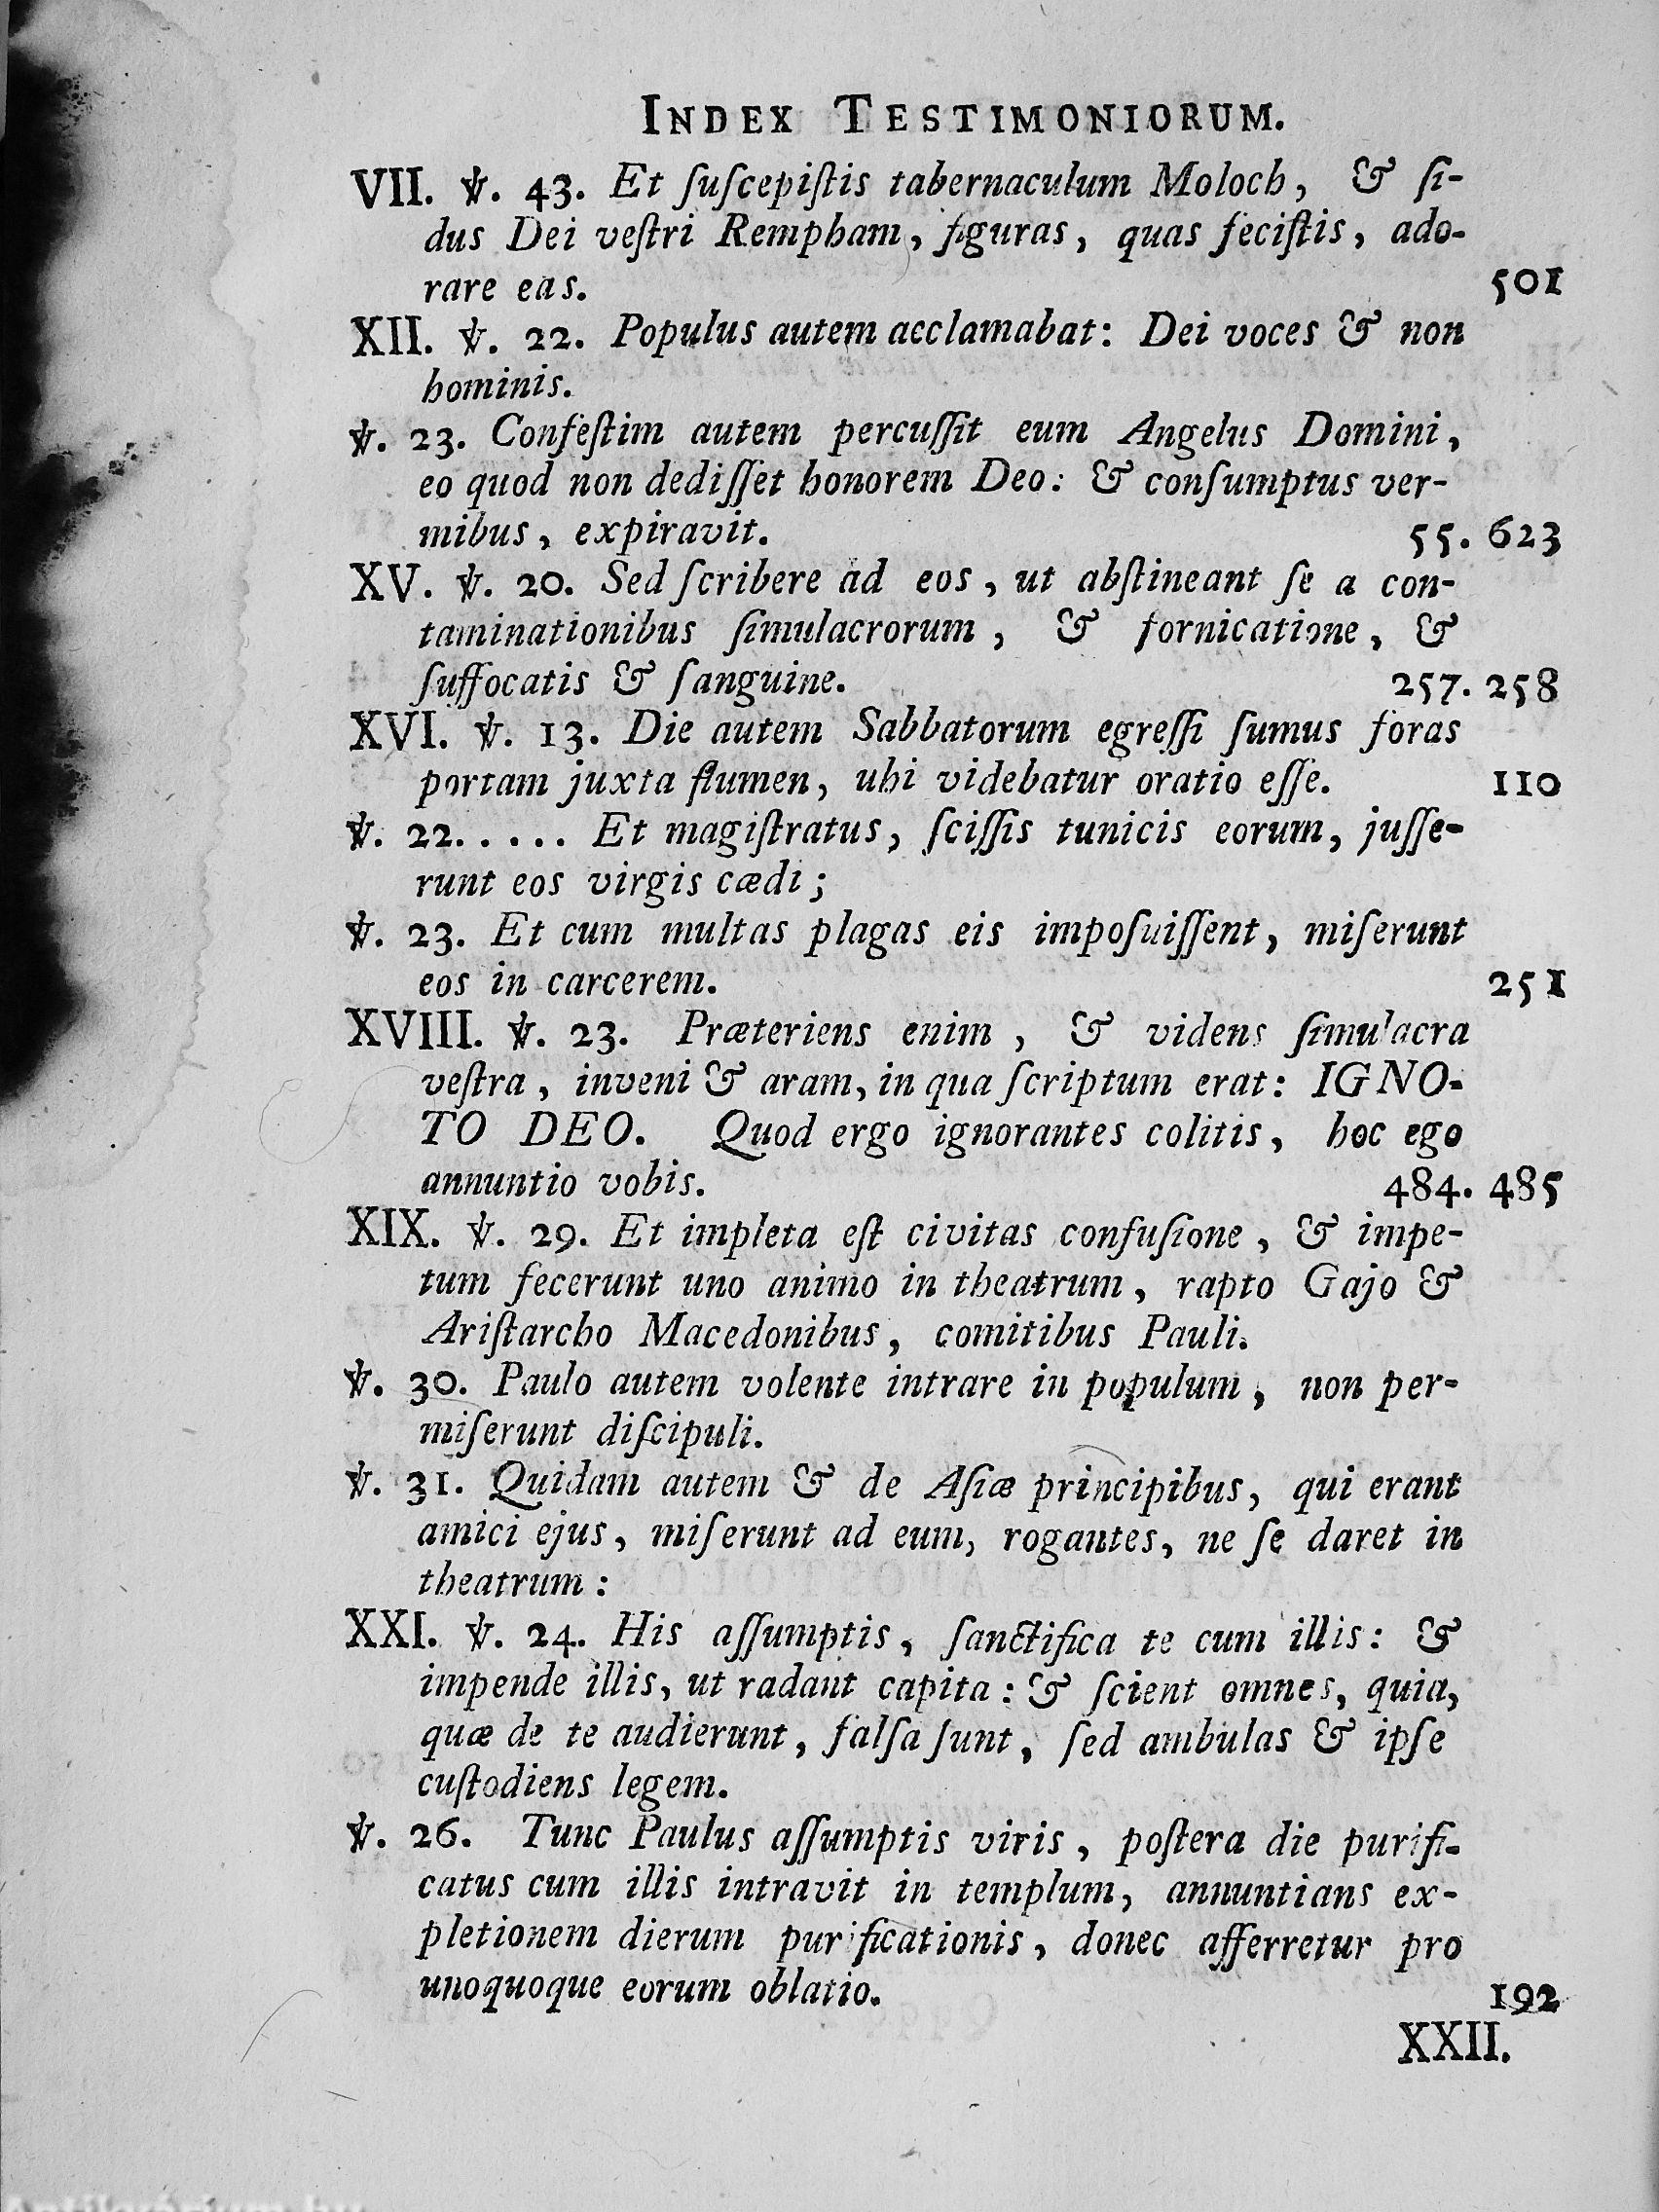 INDEX TESTIMONIORUM.
VII. ℣. 43. Et ſuſcepiſtis tabernaculum Moloch, & ſi-
dus Dei veſtri Rempham, figuras, quas feciſtis, ado-
rare eas. 501
XII. ℣. 22. Populus autem acclamabat: Dei voces & non
hominis.
℣. 23. Confeſtim autem percuſſit eum Angelus Domini,
eo quod non dediſſet honorem Deo: & conſumptus ver-
mibus, expiravit. 55. 623
XV. ℣. 20. Sed ſcribere ad eos, ut abſtineant ſe a con-
taminationibus ſimulacrorum, & fornicatione, &
ſuffocatis & ſanguine. 257. 258
XVI. ℣. 13. Die autem Sabbatorum egreſſi ſumus foras
portam juxta flumen, ubi videbatur oratio eſſe. 110
℣. 22. . . . . Et magiſtratus, ſciſſis tunicis eorum, juſſe-
runt eos virgis cædi;
℣. 23. Et cum multas plagas eis impoſuiſſent, miſerunt
eos in carcerem. 251
XVIII. ℣. 23. Præteriens enim, & videns ſimulacra
veſtra, inveni & aram, in qua ſcriptum erat: IGNO-
TO DEO. Quod ergo ignorantes colitis, hoc ego
annuntio vobis. 484. 485
XIX. ℣. 29. Et impleta eſt civitas confuſione, & impe-
tum fecerunt uno animo in theatrum, rapto Gajo &
Ariſtarcho Macedonibus, comitibus Pauli.
℣. 30. Paulo autem volente intrare in populum, non per-
miſerunt diſcipuli.
℣. 31. Quidam autem & de Aſiæ principibus, qui erant
amici ejus, miſerunt ad eum, rogantes, ne ſe daret in
theatrum:
XXI. ℣. 24. His aſſumptis, ſanctifica te cum illis: &
impende illis, ut radant capita: & ſcient omnes, quia,
quæ de te audierunt, falſa ſunt, ſed ambulas & ipſe
cuſtodiens legem.
℣. 26. Tunc Paulus aſſumptis viris, poſtera die purifi-
catus cum illis intravit in templum, annuntians ex-
pletionem dierum purificationis, donec afferretur pro
unoquoque eorum oblatio. 192
XXII.